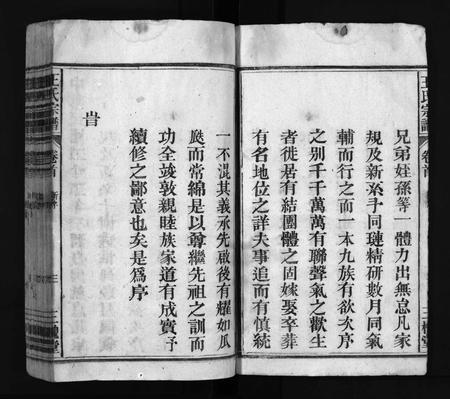 兄弟姪孫等一體力出無怠凡家
規及新系予同璉精研數月同氣
輔而行之而一本九族有欲次序
之别千千萬萬有聯聲氣之歡生
者徙居有結團體之固嫁娶卒葬
有名地位之詳夫事追而有慎統
一不混其義承先啟後有耀如瓜
瓞而常綿是以尊繼先祖之訓而
功全竣敦親睦族家道有成實予
續修之鄙意也矣是為序
旹
王氏宗譜
卷首
三槐堂
王氏宗譜
卷首
三槐堂